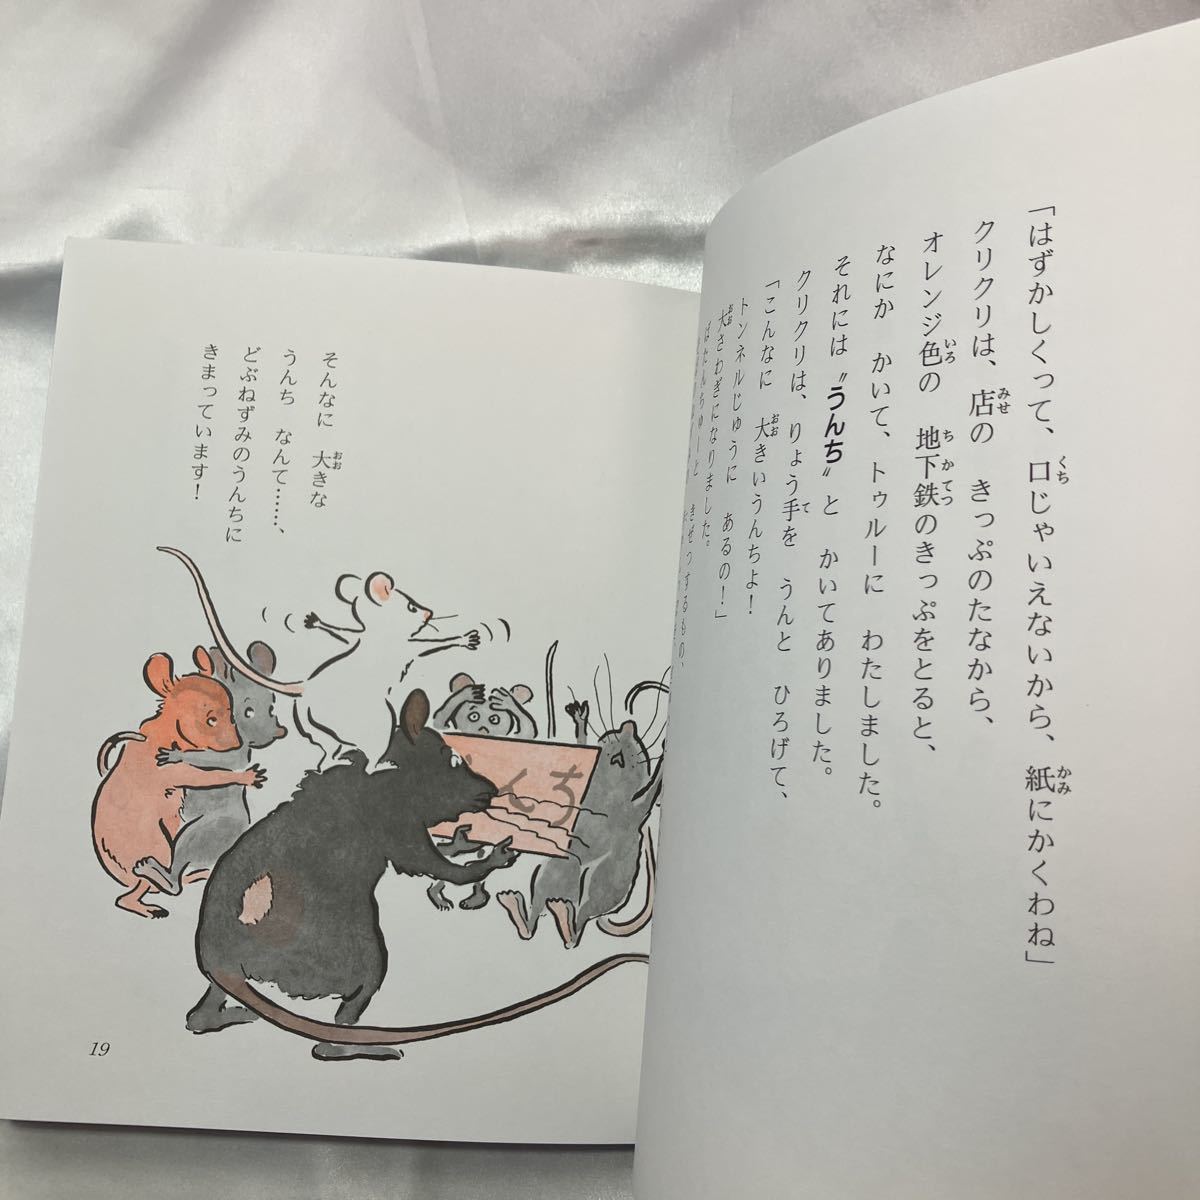 「はずかしくって、口じゃいえないから、紙にかくわね」
クリクリは、店の きっぷのたなから、
オレンジ色の 地下鉄のきっぷをとると、
なにか かいて、トゥルーに わたしました。
それには〝うんち〟と かいてありました。
クリクリは、りょう手を うんと ひろげて、
「こんなに 大きいうんちよ!
トンネルじゅうに あるの!」
大さわぎになりました。
ばたんちゅーと きぜつするもの、
そんなに 大きな
うんち なんて……、
どぶねずみのうんちに
きまっています!
んち
19